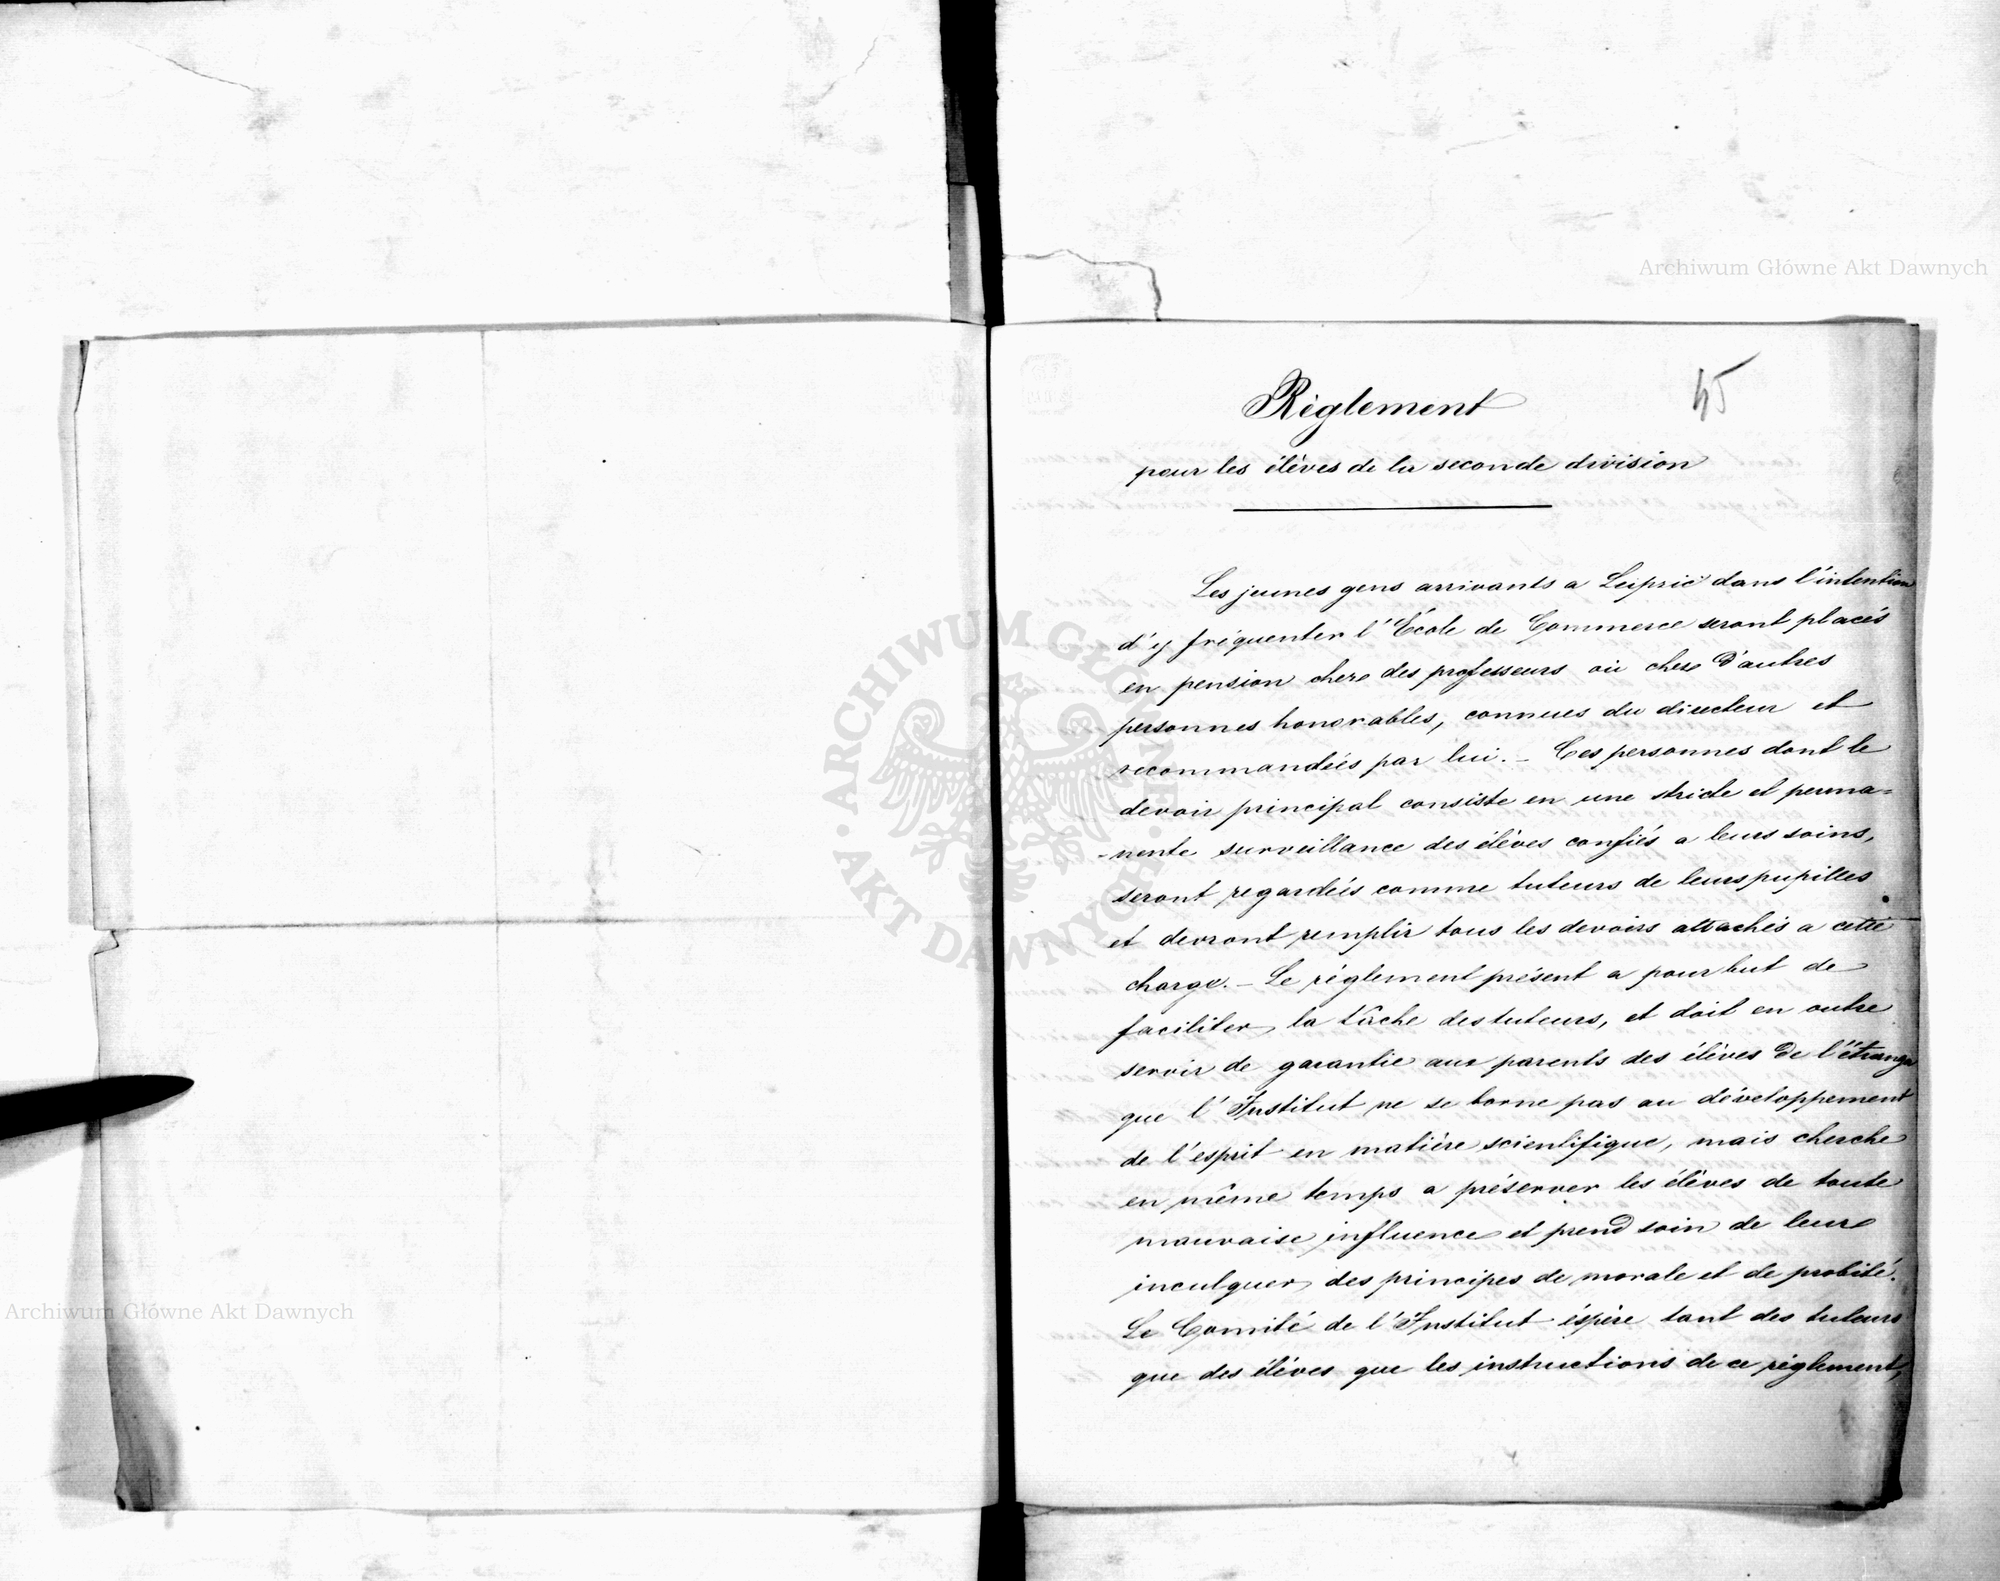 45
Règlement
pour les élèves de la seconde division
Les jeunes gens arrivants a Leipzic dans l'intention
d'y fréquenter l'École de Commerce seront placés
en pension chez des professeurs ou chez d'autres
personnes honorables, connues du directeur et
recommandées par lui. – Ces personnes dont le
devoir principal consiste en une stricte et perma=
-nente surveillance des élèves confiés a leurs soins,
seront regardées comme tuteurs de leurs pupilles
et devront remplir tous les devoirs attachés a cette
charge. – Le règlement présent a pour but de
faciliter la tâche des tuteurs, et doit en outre
servir de garantie aux parents des élèves de l'étranger
que l'Institut ne se borne pas au développement
de l'esprit en matière scientifique, mais cherche
en même temps a préserver les élèves de toute
mauvaise influence et prend soin de leur
inculquer des principes de morale et de probité.
Le Comité de l'Institut éspère tant des tuteurs
que des élèves que les instructions de ce règlement,
Archiwum Główne Akt Dawnych
Archiwum Główne Akt Dawnych
ARCHIWUM GŁÓWNE
AKT DAWNYCH